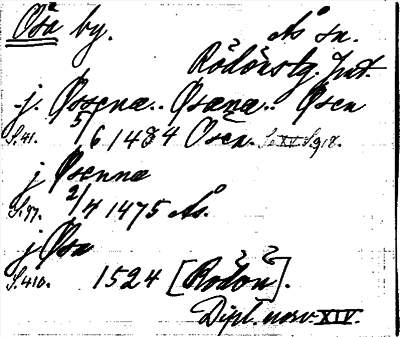 Osa by.
Ås sn.
Rödönstg. Jmt.
j. Øssenæ.. Øsænæ.. Øsen
S.41. 5/6 1484 Osen. Se XV. S. 918.
j Øsennæ
S.97. 2/4 1475 Ås.
j Øsa
S.410. 1524 [Rödön].
Dipl. norv. XIV.